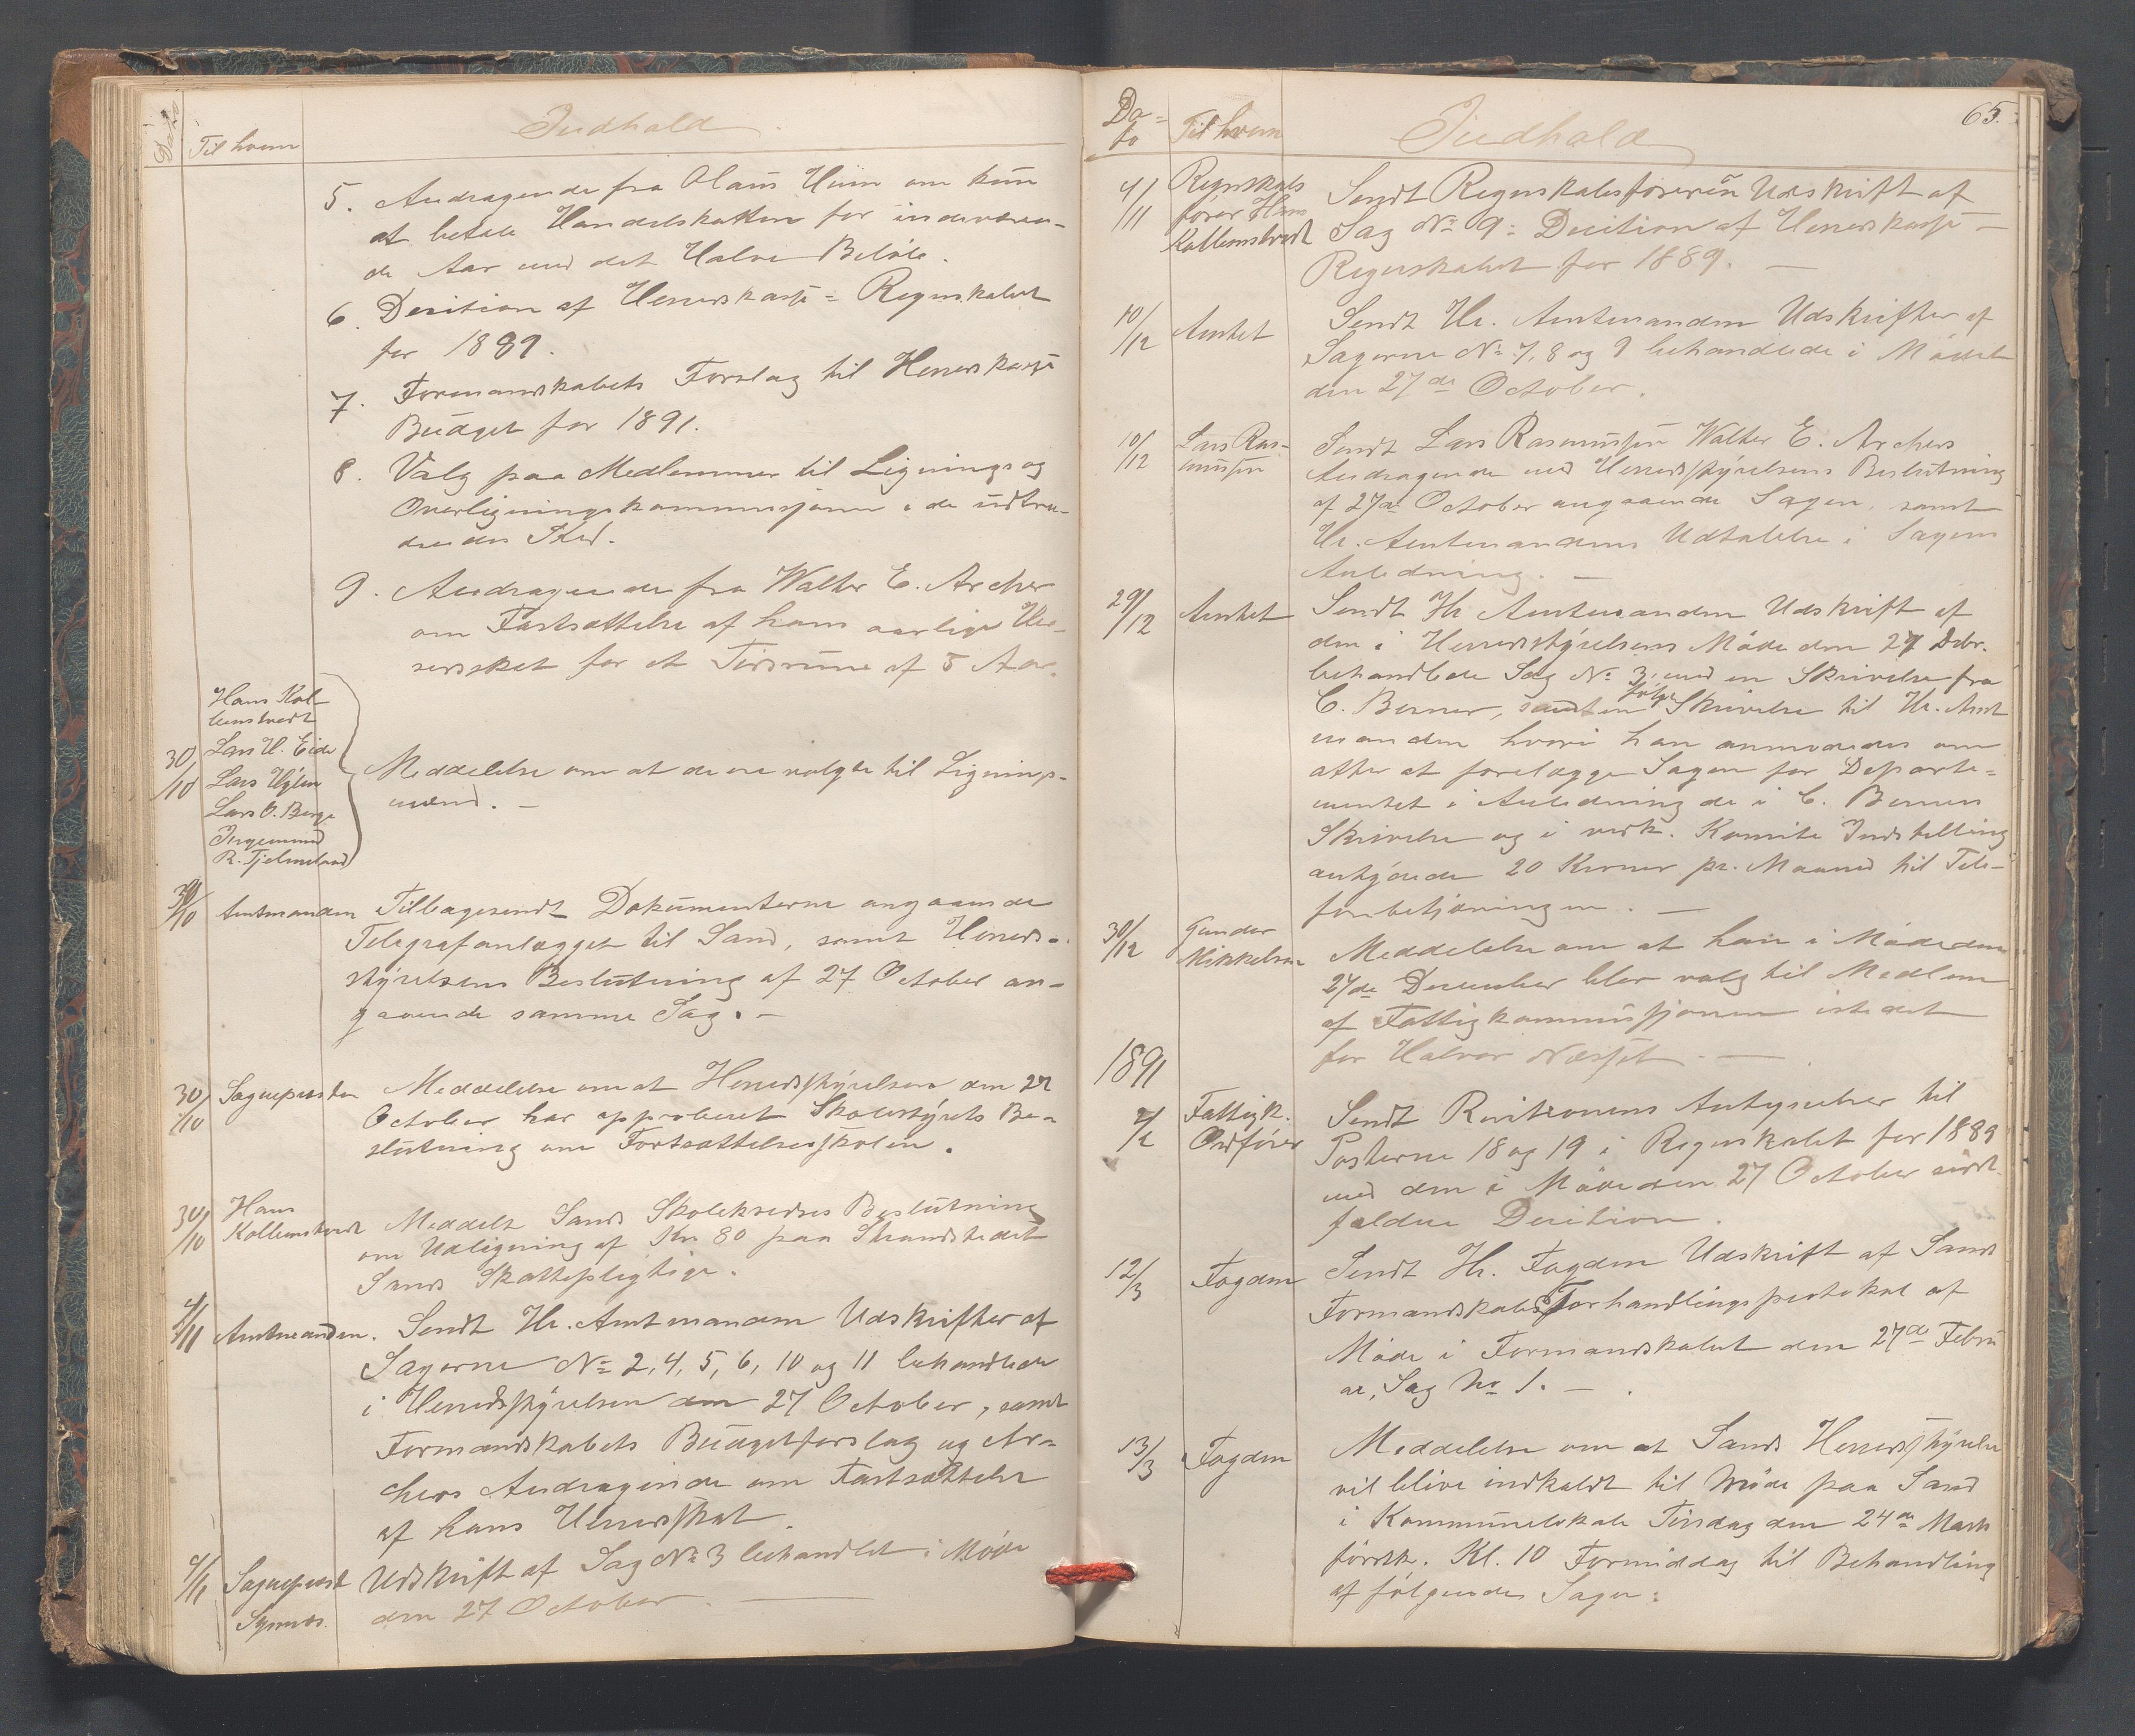 Dato
Til hvem
Indhold
5. Andragende fra Olaus Hiim om kun
at betale Handelskatten for indeværen-
de Aar med det Halve Beløb.
6. Desition af Herredskasse-Regnskabet
for 1889.
7. Formandskabets Forslag til Herredskasse
Budget for 1891.
8. Valg paa Medlemmer til Lignings og
Overligningskommissjonen i de udtræ-
dendes Sted.
9. Andragende fra Walter E. Archer
om Fastsættelse af hans aarlige Her-
redsskat for et Tidsrum af 5 Aar.
Hans Kol-
lemstvedt
Lars H. Eide
30/10 Lars Hylen
Lars O. Berge
Ingemund
R. Tjelmeland
Meddelelse om at de ere valgte til Lignings-
mænd. —
30/10 Amtmanden Tilbagesendt Dokumenterne angaaende
Telegrafanlægget til Sand, samt Herreds-
styrelsens Beslutning af 27 October an-
gaaende samme Sag. —
30/10 Sognepresten Meddelelse om at Herredsstyrelsen den 27
October har approberet Skolestyrets Be-
slutning om Fortsættelsesskolen.
30/10 Hans Kollemstvedt Meddelt Sands Skolekredses Beslutning
om Udligning af Kr 80 paa Strandstedet
Sands Skattepligtige.
4/11 Amtmanden. Sendt Hr. Amtmanden Udskrifter af
Sagerne No 2, 4, 5, 6, 10 og 11 behandlede
i Herredsstyrelsen den 27 October, samt
Formandskabets Budgetforslag og Ar-
chers Andragende om Fastsættelse
af hans Herredsskat.
4/11 Sogneprest Udskrift af Sag No 3 behandlet i Møde
Synnes. den 27 October. —
65.
Da-
to
Til hvem
Indhold
4/11 Regnskabs
fører Hans
Kollemstvedt
Sendt Regnskabsføreren Udskrift af
Sag No 9: Decition af Herredskasse-
Regnskabet for 1889. —
10/12 Amtet Sendt Hr. Amtmanden Udskrifter af
Sagerne No 7, 8 og 9 behandlede i Mødet
den 27de October.
10/12 Lars Ras-
mussen
Sendt Lars Rasmussen Walter E. Archers
Andragende med Herredsstyrelsens Beslutning
af 27de October angaaende Sagen, samt
Hr. Amtmandens Udtalelse i Sagens
Anledning. —
29/12 Amtet Sendt Hr Amtmanden Udskrift af
den i Herredsstyrelsens Møde den 27 Dcbr.
behandlede Sag No 3, med en Skrivelse fra
C. Berner, samt en følge Skrivelse til Hr. Amt
manden hvori han anmodedes om
atter at forelægge Sagen for Departe-
mentet i Anledning de i C. Berners
Skrivelse og i vedk. Komite Indstilling
antydede 20 Kroner pr. Maaned til Tele-
fonbetjeningen. —
30/12 Gunder
Mikkelsen
Meddelelse om at han i Møde den
27de December blev valg til Medlem
af Fattigkommissjonen istedet
for Halvor Næsset. —
1891
2/2 Fattigk.
Ordfører
Sendt Revitionens Antegnelser til
Posterne 18 og 19 i Regnskabet for 1889
med den i Møde den 27 October
faldne Decition.
12/3 Fogden Sendt Hr. Fogden Udskrift af Sands
Formandskabs Forhandlingsprotokol af
Møde i Formandskabet den 27de Febru
ar, Sag No 1. —
13/3 Fogden Meddelelse om at Sands Herredsstyrelse
vil blive indkaldt til Møde paa Sand
i Kommunelokale Tirsdag den 24de Marts
førstk. Kl. 10 Formiddag til Behandling
af følgende Sager: